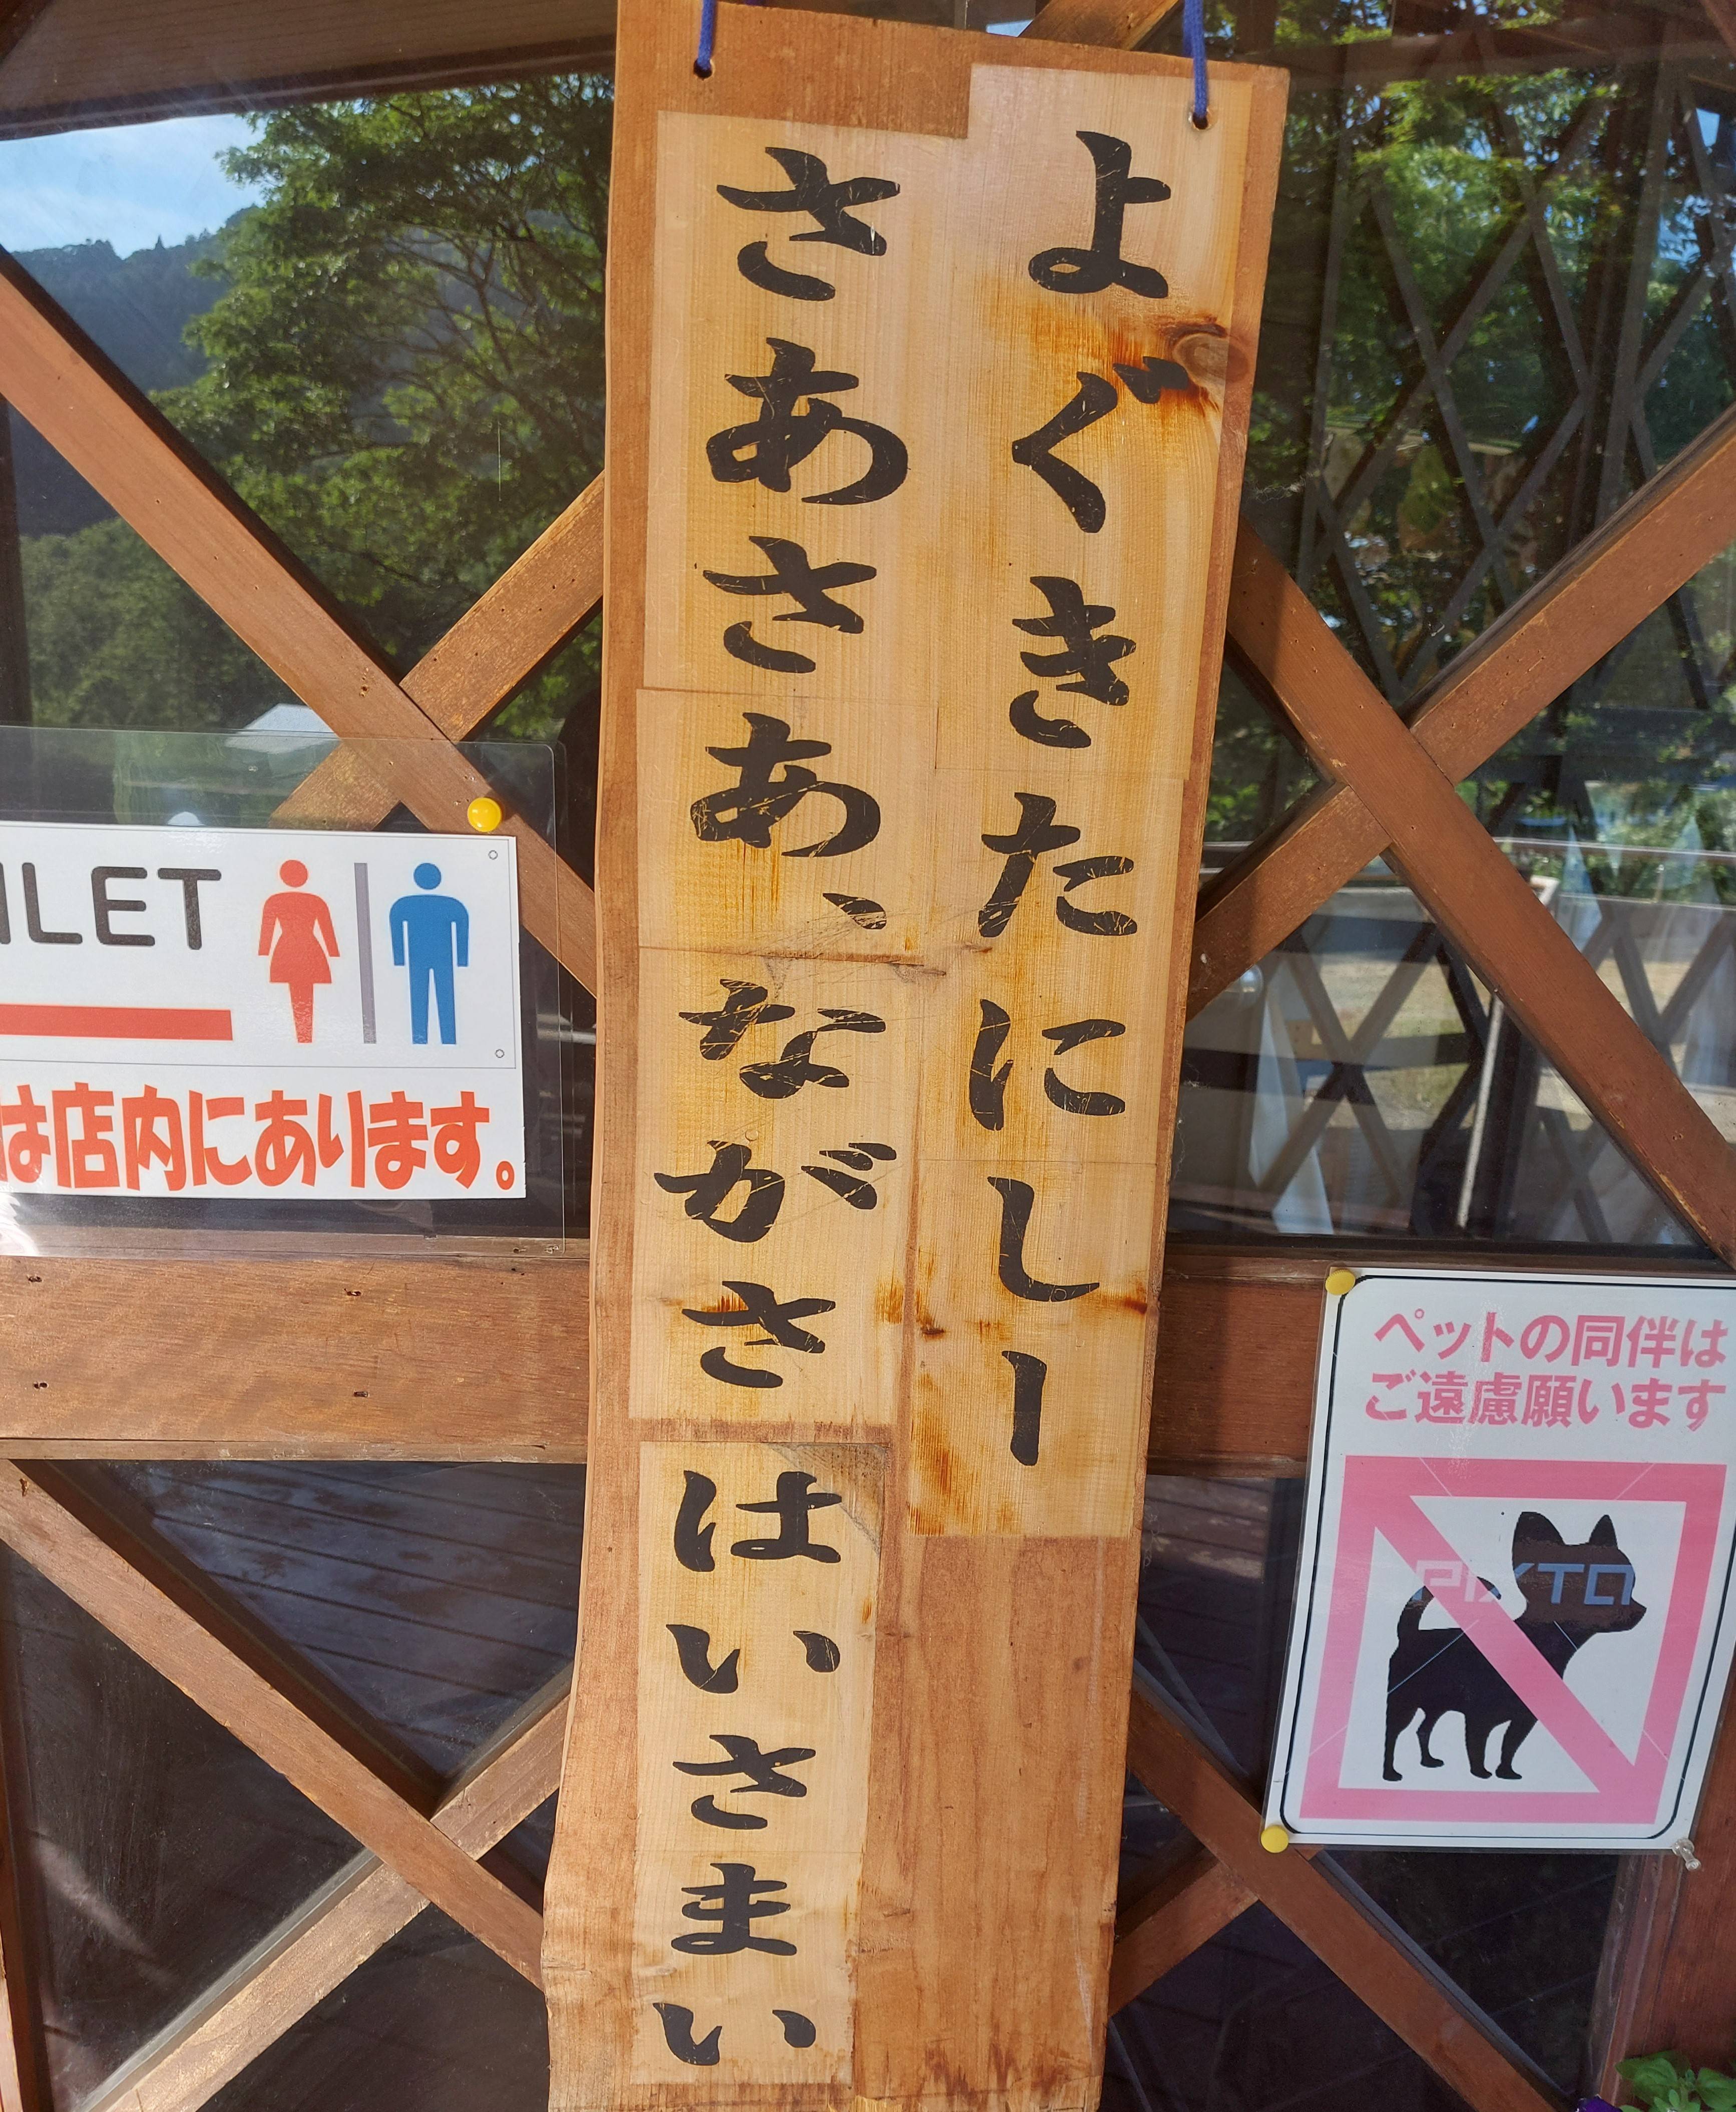 よぐきたにしー
さあさあ、ながさ
はいいさまい
ILET
は店内にあります。
ペットの同伴は
ご遠慮願います
PIXTA